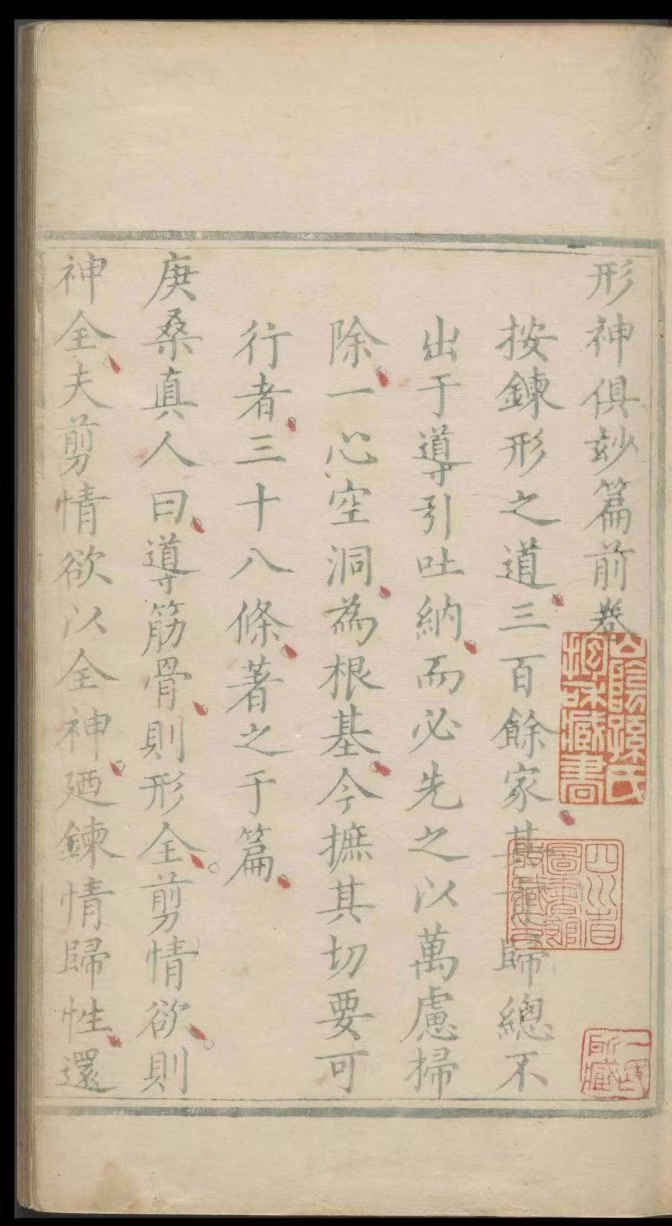 形神俱玅篇前卷
按鍊形之道三百餘家其歸總不
出于導引吐納而必先之以萬慮掃
除一心空洞為根基今摭其切要可
行者三十八條著之于篇
庚桑真人曰導筋骨則形全剪情欲則
神全夫剪情欲以全神廼鍊情歸性還
山陰孫氏
藏書
四川省
圖書館